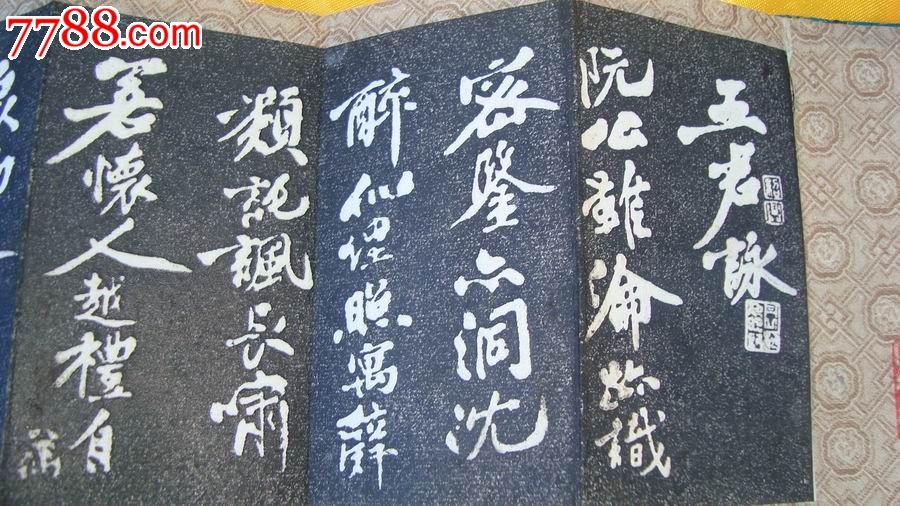 7788.com
五君詠
阮公雖淪跡識
密鑒亦洞沈
醉似埋照寓辭
類託諷長嘯
若懷人越禮自